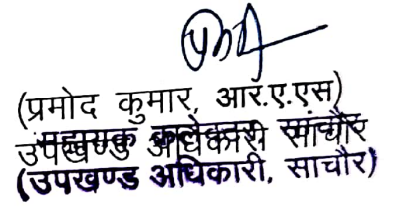 (प्रमोद कुमार, आर.ए.एस)
सहायक कलेक्टर, सांचौर
उपखण्ड अधिकारी सांचौर
(उपखण्ड अधिकारी, साचौर)